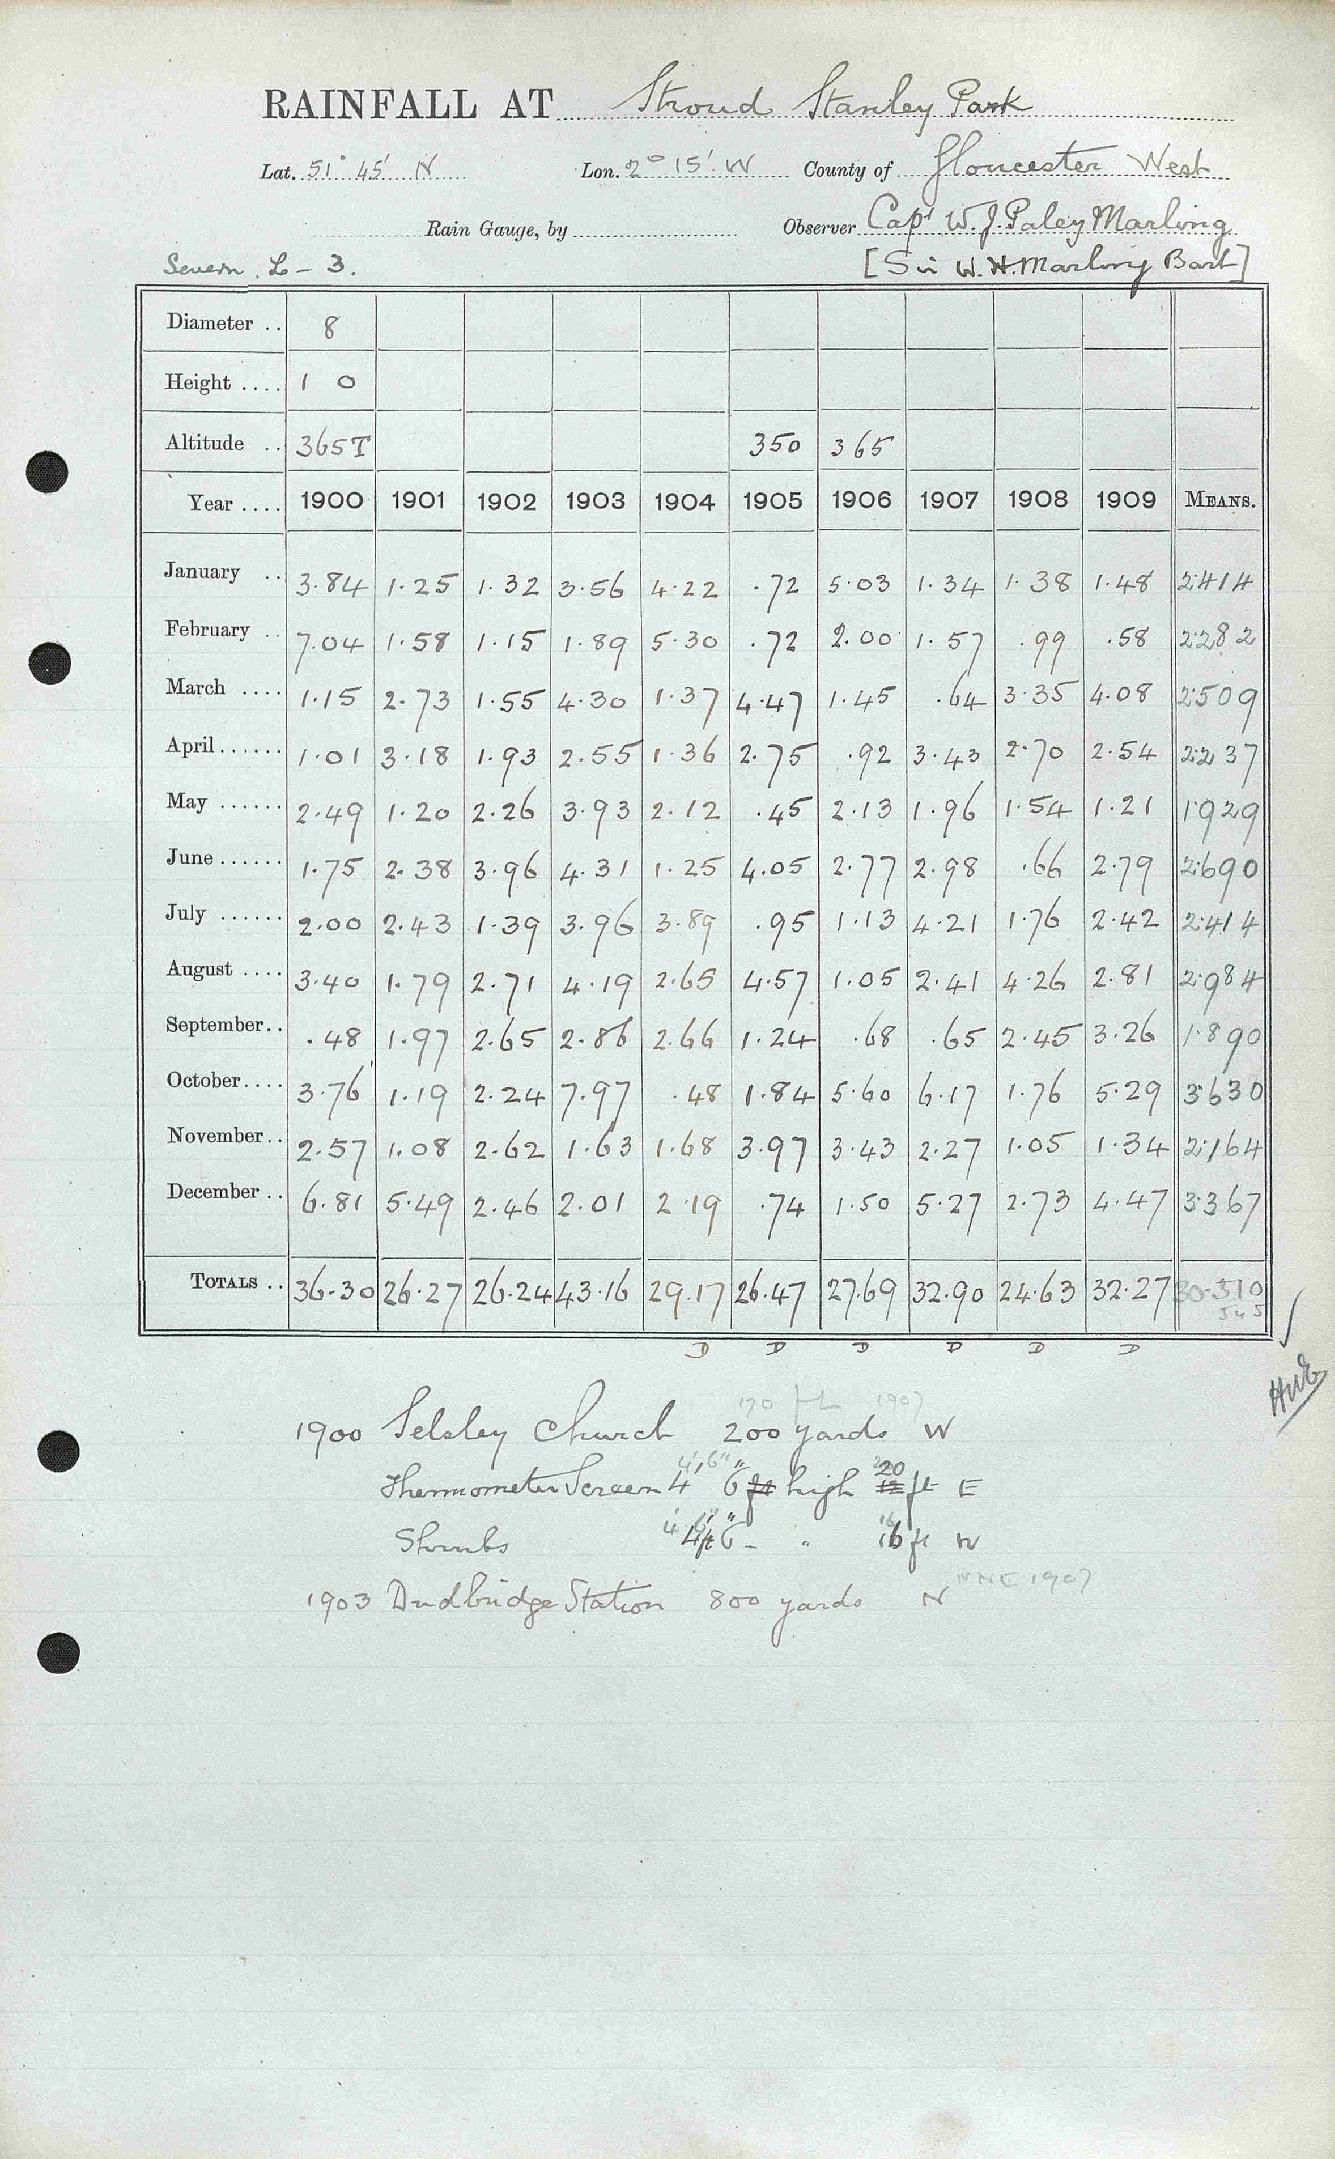 RAINFALL AT Stroud Stanley Park
Lat. 51° 45' N Lon. 2° 15' W County of Gloucester West
Rain Gauge, by Observer Capt W. J. Paley Marling
Severn L - 3. [Sir W. H. Marling Bart]
Diameter .. 8
Height .... 1 0
Altitude .. 365T 350 365
Year .... 1900 1901 1902 1903 1904 1905 1906 1907 1908 1909 MEANS.
January .. 3.84 1.25 1.32 3.56 4.22 .72 5.03 1.34 1.38 1.48 2.414
February .. 7.04 1.58 1.15 1.89 5.30 .72 2.00 1.57 .99 .58 2.282
March .... 1.15 2.73 1.55 4.30 1.37 4.47 1.45 .64 3.35 4.08 2.509
April ...... 1.01 3.18 1.93 2.55 1.36 2.75 .92 3.43 2.70 2.54 2.237
May ...... 2.49 1.20 2.26 3.93 2.12 .45 2.13 1.96 1.54 1.21 1.929
June ...... 1.75 2.38 3.96 4.31 1.25 4.05 2.77 2.98 .66 2.79 2.690
July ...... 2.00 2.43 1.39 3.96 3.89 .95 1.13 4.21 1.76 2.42 2.414
August .... 3.40 1.79 2.71 4.19 2.65 4.57 1.05 2.41 4.26 2.81 2.984
September.. .48 1.97 2.65 2.86 2.66 1.24 .68 .65 2.45 3.26 1.890
October.... 3.76 1.19 2.24 7.97 .48 1.84 5.60 6.17 1.76 5.29 3.630
November.. 2.57 1.08 2.62 1.63 1.68 3.97 3.43 2.27 1.05 1.34 2.164
December .. 6.81 5.49 2.46 2.01 2.19 .74 1.50 5.27 2.73 4.47 3.367
TOTALS .. 36.30 26.27 26.24 43.16 29.17 26.47 27.69 32.90 24.63 32.27 30.510
D D D D D D
170 ft 1907
1900 Selsley Church 200 yards W
4' 6"
Thermometer Screen 4' 6" ft high 20 ft E
Shrubs 4 ft 6 - " 16 ft W
1903 Dudbridge Station 800 yards N NNE 1907